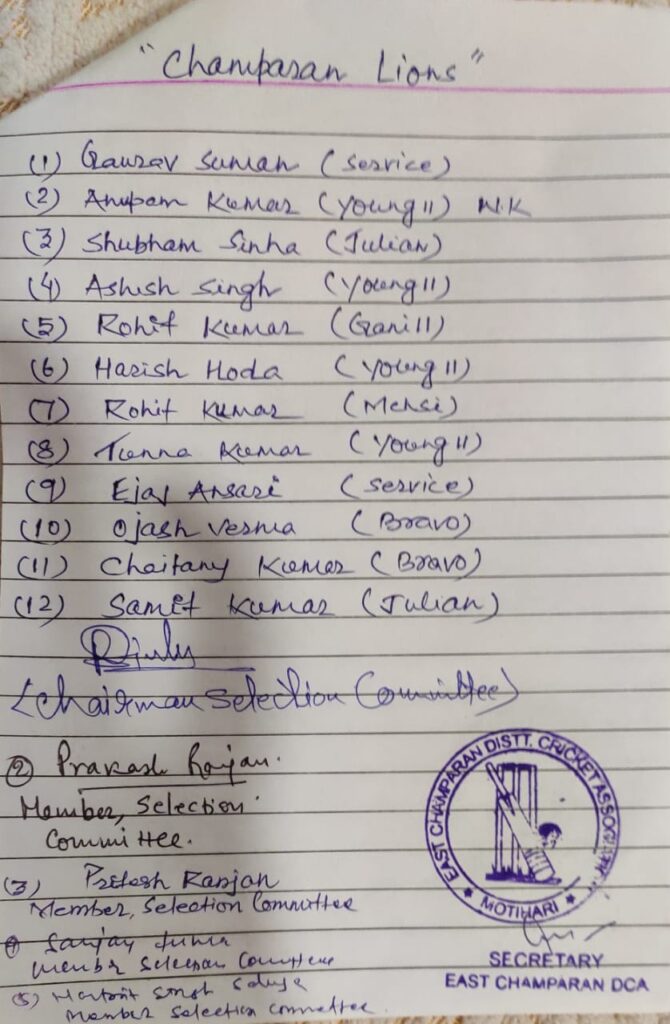 "Champaran Lions"
(1) Gaurav Suman (Service)
(2) Anupam Kumar (Young 11) W.K
(3) Shubham Sinha (Julian)
(4) Ashish Singh (Young 11)
(5) Rohit Kumar (Gani 11)
(6) Harish Hoda (Young 11)
(7) Rohit Kumar (Mehsi)
(8) Tunna Kumar (Young 11)
(9) Ejaj Ansari (Service)
(10) Ojash Verma (Bravo)
(11) Chaitany Kumar (Bravo)
(12) Samit Kumar (Julian)
(Chairman Selection Committee)
(2) Prakash Ranjan.
Member, Selection
Committee.
(3) Pritesh Ranjan
Member, Selection Committee
(4) Sanjay
Member Selection Committee
(5) Singh
Member Selection Committee.
EAST CHAMPARAN DISTT. CRICKET ASSOCIATION
MOTIHARI
SECRETARY
EAST CHAMPARAN DCA